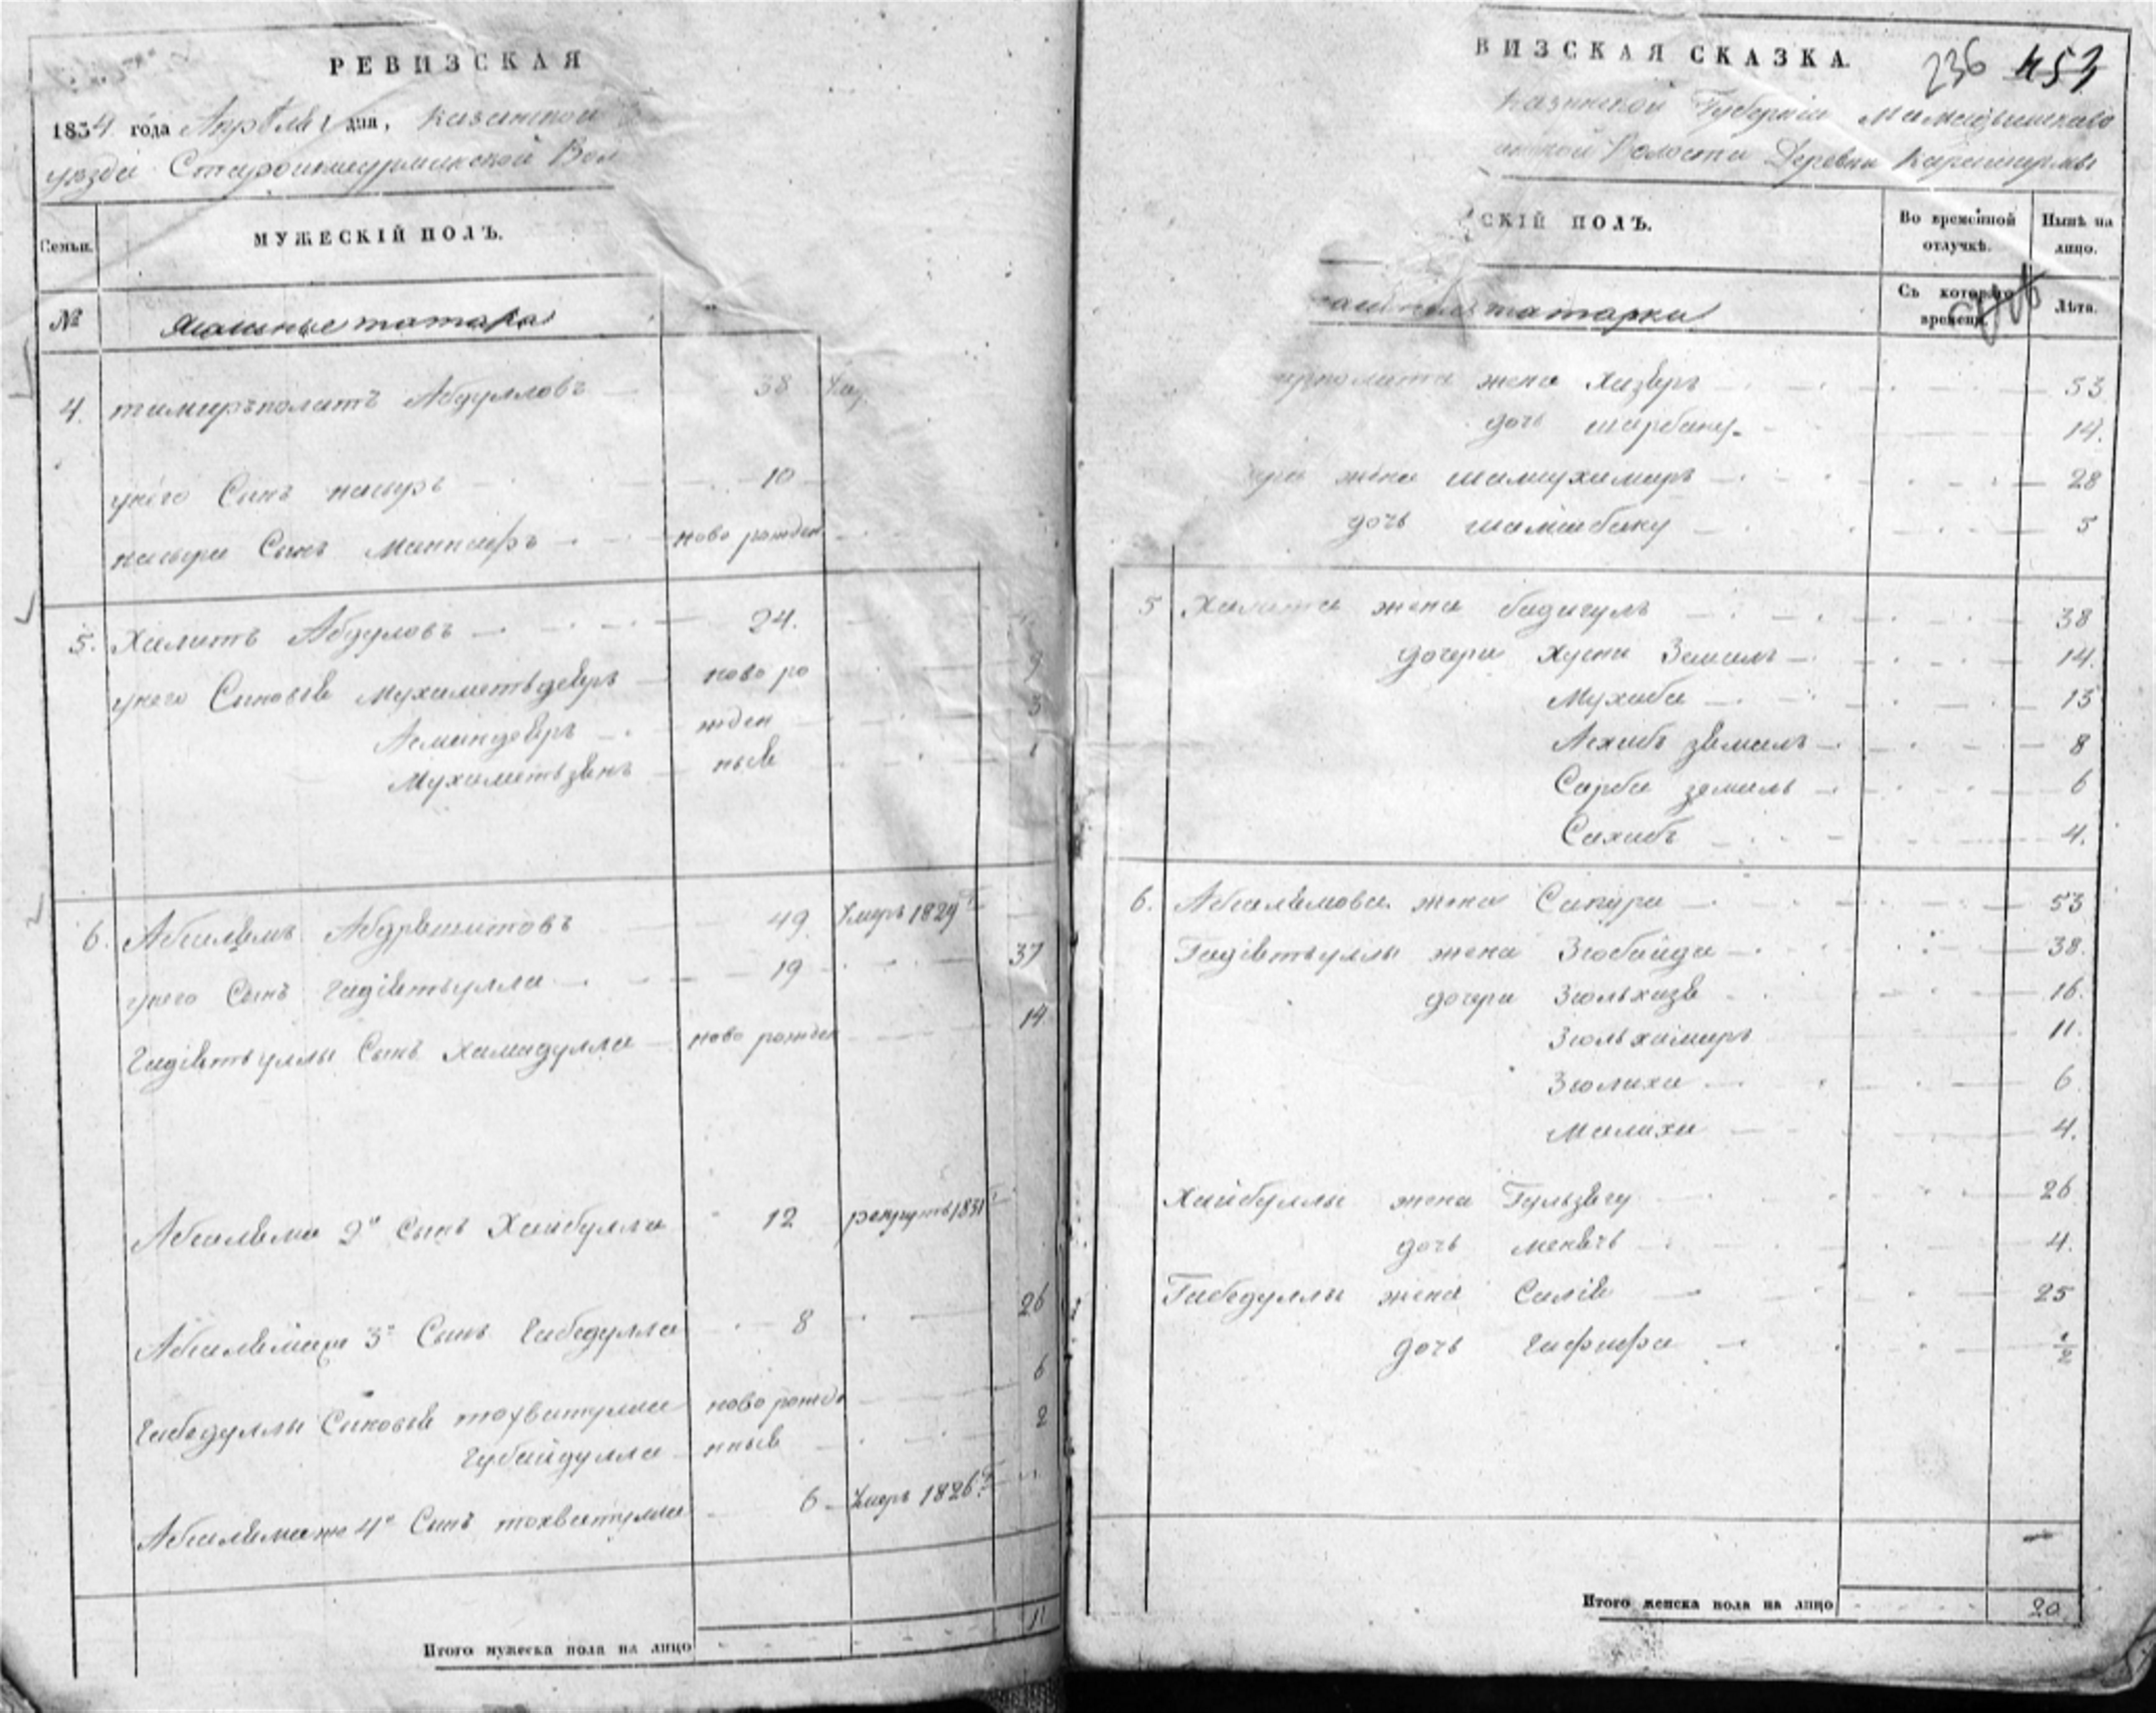 РЕВИЗСКАЯ
1834 года Апреля дня, Казанской
уезда Волости
Семьи.
МУЖЕСКІЙ ПОЛЪ.
№
Ясашные татара
4. тимирполатъ Абдулловъ 38
унего Сынъ насыръ 10
насыра Сынъ Маннафъ ново рожден
5. Халитъ Абдуловъ 24.
унего Сыновье Мухаметьдеяръ ново ро 9
жден 3
Мухаметьзянъ ные 1
6. Абсалямъ Абдряшитовъ 49 Умеръ 1829
унего Сынъ Гадіятьулла 19 37
Гадіятьуллы Сынъ Хамидулла ново рожден 14
Абсаляма 2й Сынъ Хайбулла 12 рекрутъ 1831
Абсаляма 3й Сынъ Габедулла 8 26
Габедуллы Сыновье тохватулла ново рожде 6
Губайдулла нные 2
Абсаляма 4й Сынъ тохватулла 6 Умеръ 1826
Итого мужеска пола на лицо 11
ВИЗСКАЯ СКАЗКА.
236 453
Казанской Губерніи Мамадышскаго
Волости Деревни
СКІЙ ПОЛЪ.
Во временной отлучкѣ.
Нынѣ на лицо.
татарки
Съ котораго времени.
Лѣта.
жена 53
дочь шарбану 14.
жена 28
дочь шамсбану 5
5 Халита жена бадигулъ 38
дочери Хусни Земалъ 14.
Мухиба 13
8
Сарби земалъ 6
Сахибъ 4.
6. Абсалямова жена Сапура 53
Гадіятьуллы жена Зюбайда 38.
дочери Зюльхизя 16.
11.
Зюлиха 6
Малиха 4.
Хайбуллы жена 26
дочь 4.
Габедуллы жена Салія 25
дочь Гафифа 1/2
Итого женска пола на лицо 20